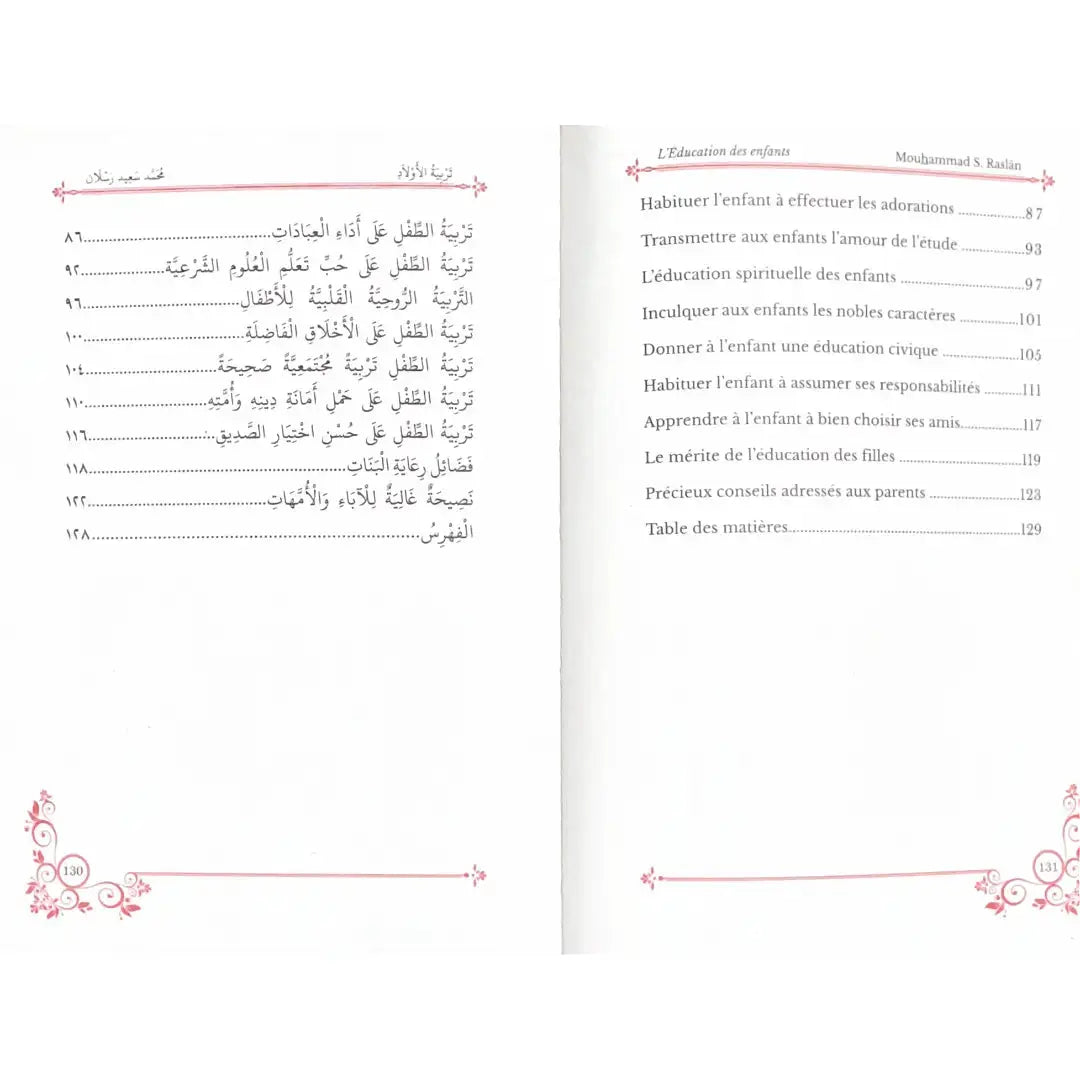 تَرْبِيَةُ الْأَوْلَادِ مُحَمَّد سَعِيد رَسْلَان
تَرْبِيَةُ الطِّفْلِ عَلَى أَدَاءِ الْعِبَادَاتِ...........................................................٨٦
تَرْبِيَةُ الطِّفْلِ عَلَى حُبِّ تَعَلُّمِ الْعُلُومِ الشَّرْعِيَّةِ..................................٩٢
التَّرْبِيَةُ الرُّوحِيَّةُ الْقَلْبِيَّةُ لِلْأَطْفَالِ..................................................٩٦
تَرْبِيَةُ الطِّفْلِ عَلَى الْأَخْلَاقِ الْفَاضِلَةِ.................................................١٠٠
تَرْبِيَةُ الطِّفْلِ تَرْبِيَةً مُجْتَمَعِيَّةً صَحِيحَةً..........................................١٠٤
تَرْبِيَةُ الطِّفْلِ عَلَى حَمْلِ أَمَانَةِ دِينِهِ وَأُمَّتِهِ.......................................١١٠
تَرْبِيَةُ الطِّفْلِ عَلَى حُسْنِ اخْتِيَارِ الصَّدِيقِ..........................................١١٦
فَضَائِلُ رِعَايَةِ الْبَنَاتِ......................................................................١١٨
نَصِيحَةٌ غَالِيَةٌ لِلْآبَاءِ وَالْأُمَّهَاتِ.......................................................١٢٢
الْفِهْرِسُ.........................................................................................١٢٨
130
L'Education des enfants Mouhammad S. Raslân
Habituer l'enfant à effectuer les adorations .................87
Transmettre aux enfants l'amour de l'étude .................93
L'éducation spirituelle des enfants ...............................97
Inculquer aux enfants les nobles caractères ...............101
Donner à l'enfant une éducation civique ...................105
Habituer l'enfant à assumer ses responsabilités ..........111
Apprendre à l'enfant à bien choisir ses amis...............117
Le mérite de l'éducation des filles ...............................119
Précieux conseils adressés aux parents .......................123
Table des matières..........................................................129
131